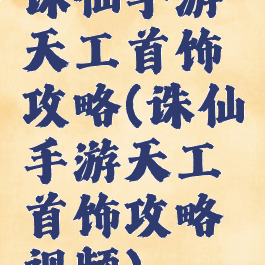 诛仙手游
天工首饰
攻略(诛仙
手游天工
首饰攻略
视频)